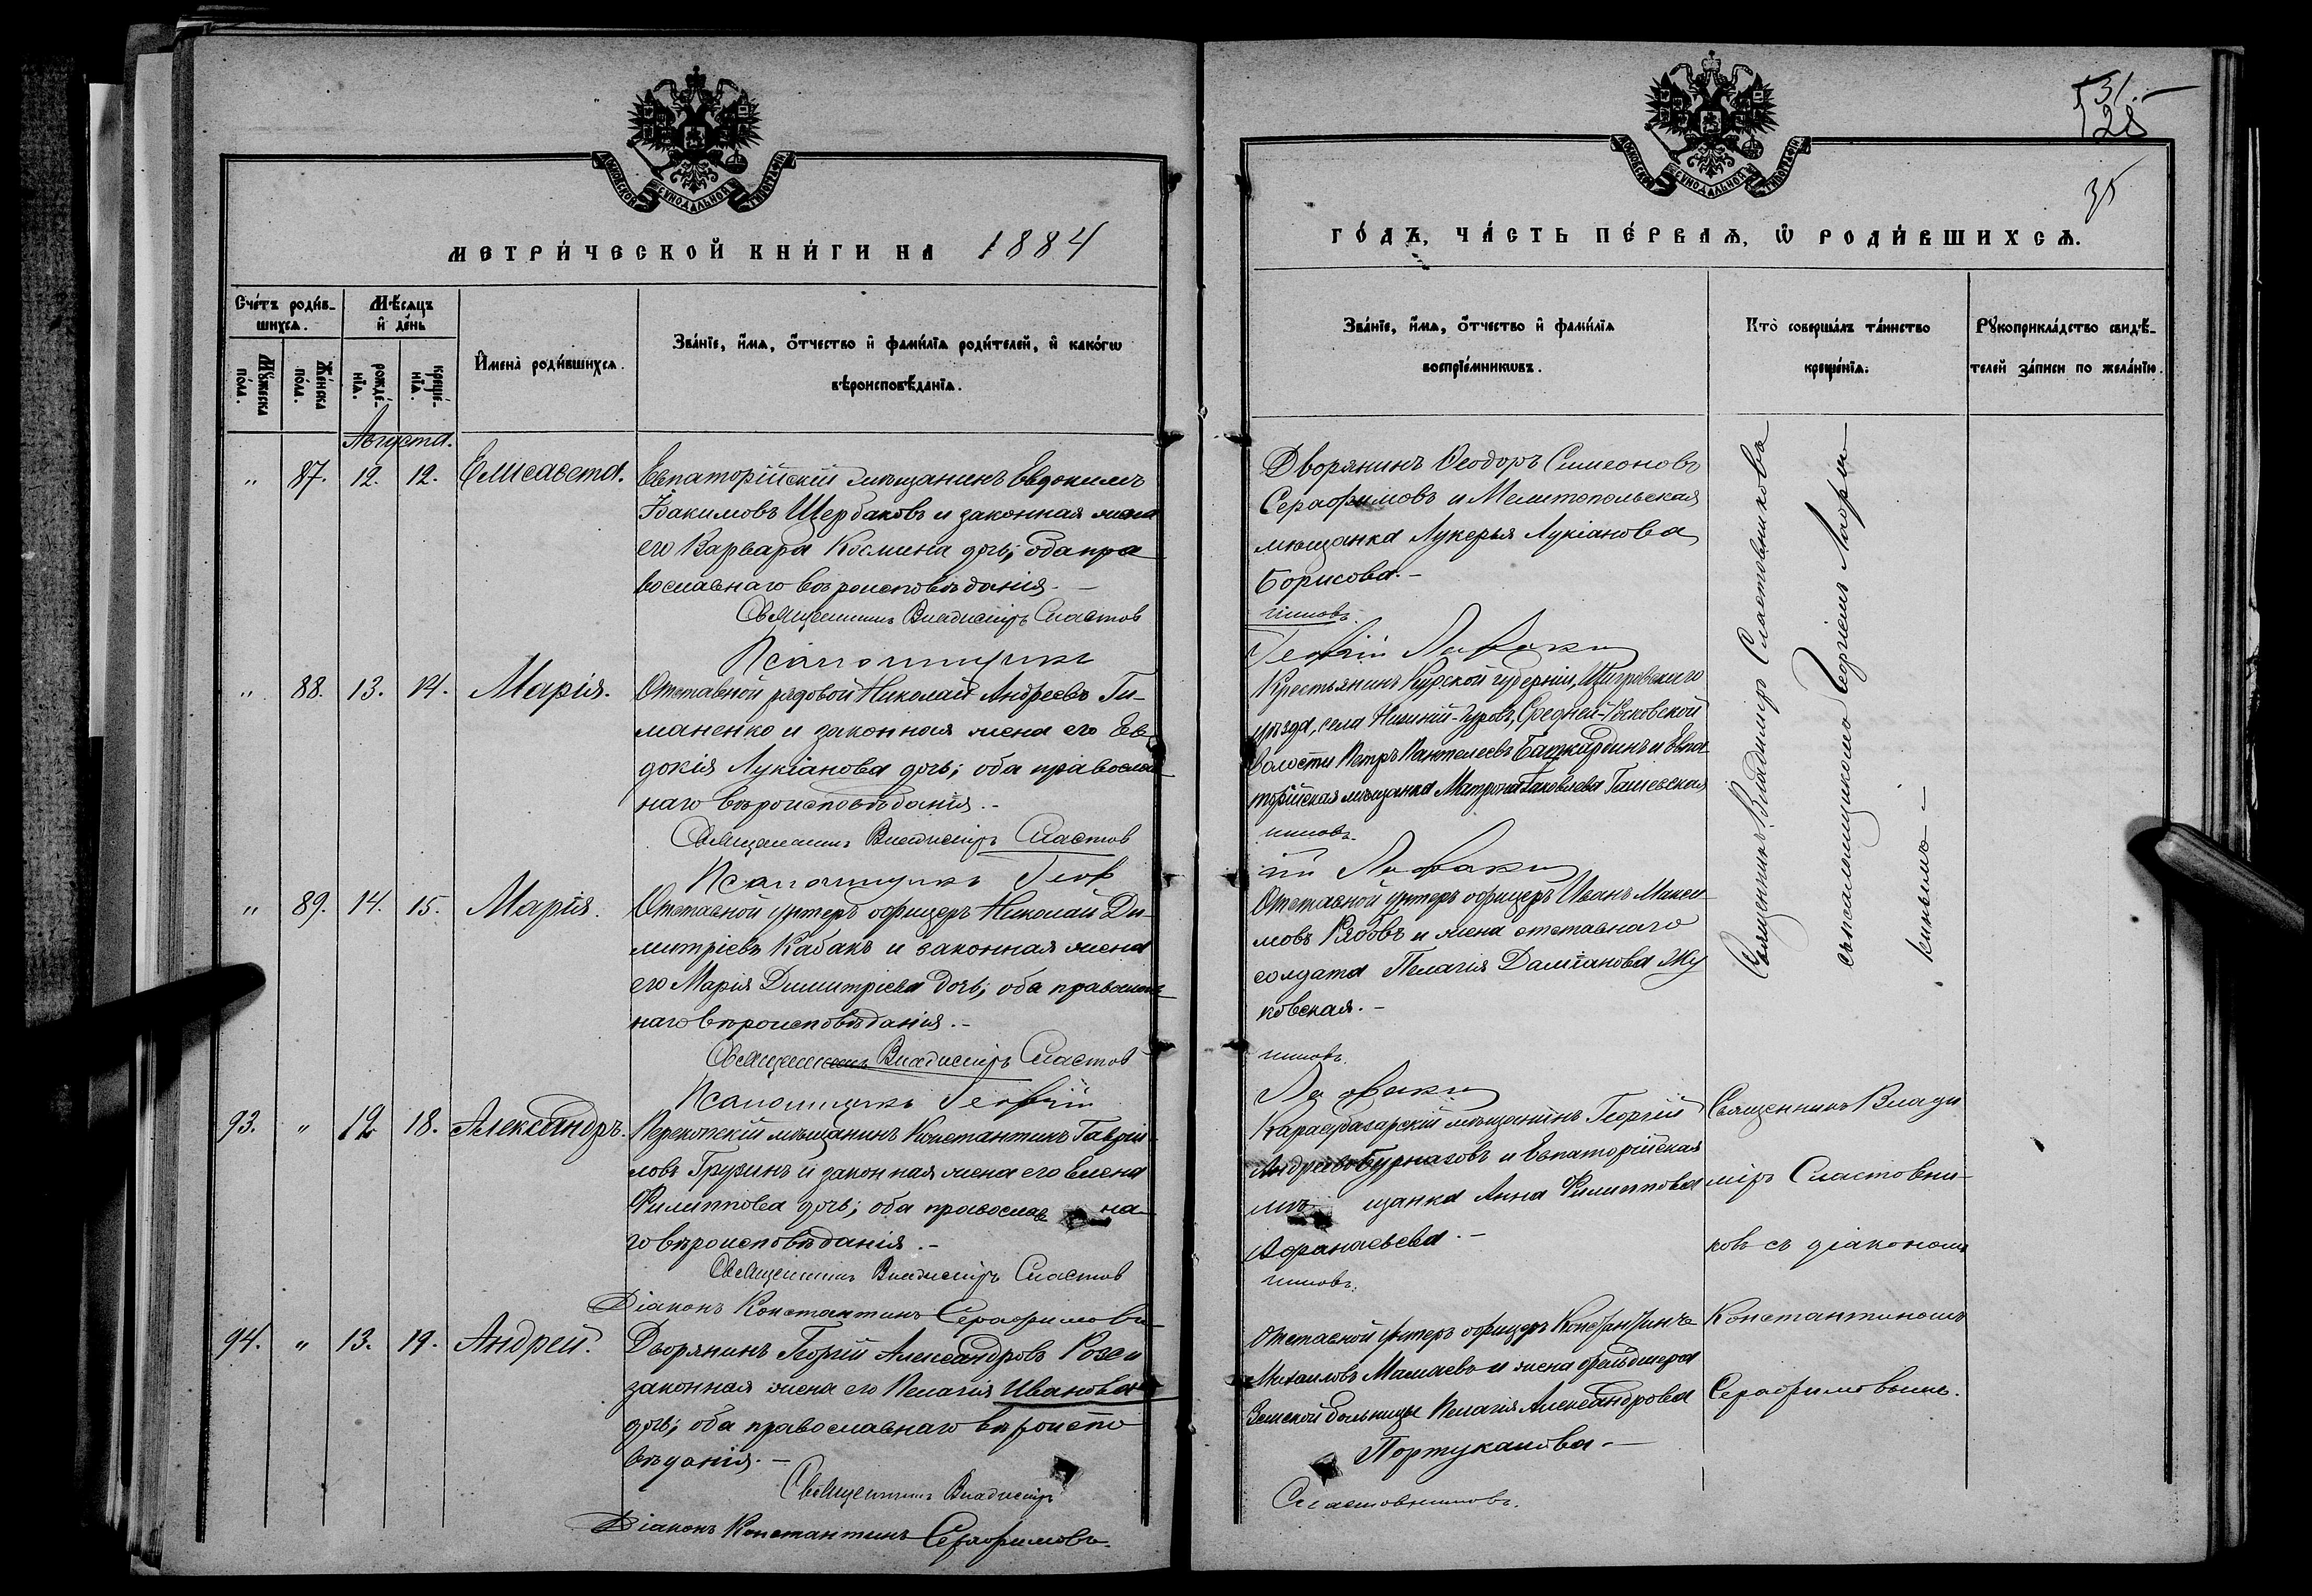 МОСКОВСКОЙ СѴНОДАЛЬНОЙ ТИПОГРАФІИ
МЕТРИ́ЧЕСКОЙ КНИ́ГИ НА 1884
Сче́тъ роди́в-
шихсѧ.
Мѣ́сѧцъ
и҆ де́нь
Мꙋ́жеска
по́ла.
Же́нска
по́ла.
рожде́-
нїѧ.
креще́-
нїѧ.
И҆мена̀ роди́вшихсѧ.
Зва́нїе, и҆́мѧ, ѻ҆́тчество и҆ фами́лїѧ роди́телей, и҆ како́гѡ
вѣроисповѣ́данїѧ.
Августа.
„ 87. 12. 12. Елисавета.
Евпаторійскій мѣщанинъ Евдокимъ
Іоакимовъ Щербаковъ и законная жена
его Варвара Космина дочь; оба пра
вославнаго вѣроисповѣданія. —
Священникъ Владиміръ Сластов
Псаломщикъ
„ 88. 13. 14. Марія.
Отставной рядовой Николай Андреевъ Ги-
маненко и законная жена его Ев-
докія Лукіанова дочь; оба православ-
наго вѣроисповѣданія. -
Священникъ Владиміръ Сластов
Псаломщикъ Геор
„ 89. 14. 15. Марія.
Отставной унтеръ офицеръ Николай Ди-
митріевъ Кабакъ и законная жена
его Марія Димитріева дочь; оба православ-
наго вѣроисповѣданія. -
Священникъ Владиміръ Сластов
Псаломщикъ Георгій
93. „ 12 18. Александръ.
Перекопскій мѣщанинъ Константинъ Гавріи-
ловъ Грузинъ и законная жена его Елена
Филиппова дочь; оба православ на-
го вѣроисповѣданія. -
Священникъ Владиміръ Сластов
Діаконъ Константинъ Серафимовъ
94. „ 13. 19. Андрей.
Дворянинъ Георгій Александровъ Розе и
законная жена его Пелагія Иванова
дочь; оба православнаго вѣроиспо
вѣданія. —
Священникъ Владиміръ
Діаконъ Константинъ Серафимовъ.
31.
128
35
МОСКОВСКОЙ СѴНОДАЛЬНОЙ ТИПОГРАФІИ
ГО́ДЪ, ЧА́СТЬ ПЕ́РВАѦ, Ѡ҆ РОДИ́ВШИХСѦ.
Зва́нїе, и҆́мѧ, ѻ҆́тчество и҆ фами́лїѧ
воспрїе́мникѡвъ.
Кто̀ соверша́лъ та́инство
креще́нїѧ.
Рꙋкоприкла́дство свидѣ́-
телей за́писи по жела́нїю.
Дворянинъ Ѳеодоръ Симеоновъ
Серафимовъ и Мелитопольская
мѣщанка Лукерья Лукіанова
Борисова. -
никовъ.
Георгій Лафаки
Крестьянинъ Курской губерніи, Щигровскаго
уѣзда, села Нижній-Гуровъ, Средней-
волости Петръ Пантелеевъ и Евпа
торійская мѣщанка Матрона Іаковлева
никовъ.
ій Лафаки
Отставной унтеръ офицеръ Иванъ Макси-
мовъ Рябовъ и жена отставнаго
солдата Пелагія Даміанова Жу
ковская. -
никовъ.
Лафаки
Священникъ Владиміръ Сластовниковъ
съ псаломщикомъ Георгіемъ Лафаки
Карасубазарскій мѣщанинъ Георгій
Андреевъ Бурназовъ и Евпаторійская
мѣ щанка Анна Филиппова
Афанасьева. -
никовъ.
Священникъ Влади
міръ Сластовни-
ковъ съ діакономъ
Константиномъ
Серафимовымъ.
Отставной унтеръ офицеръ Константинъ
Михаиловъ Мамаевъ и жена фельдшера
Земской больницы Пелагія Александрова
Портукалова. —
Сластовниковъ.